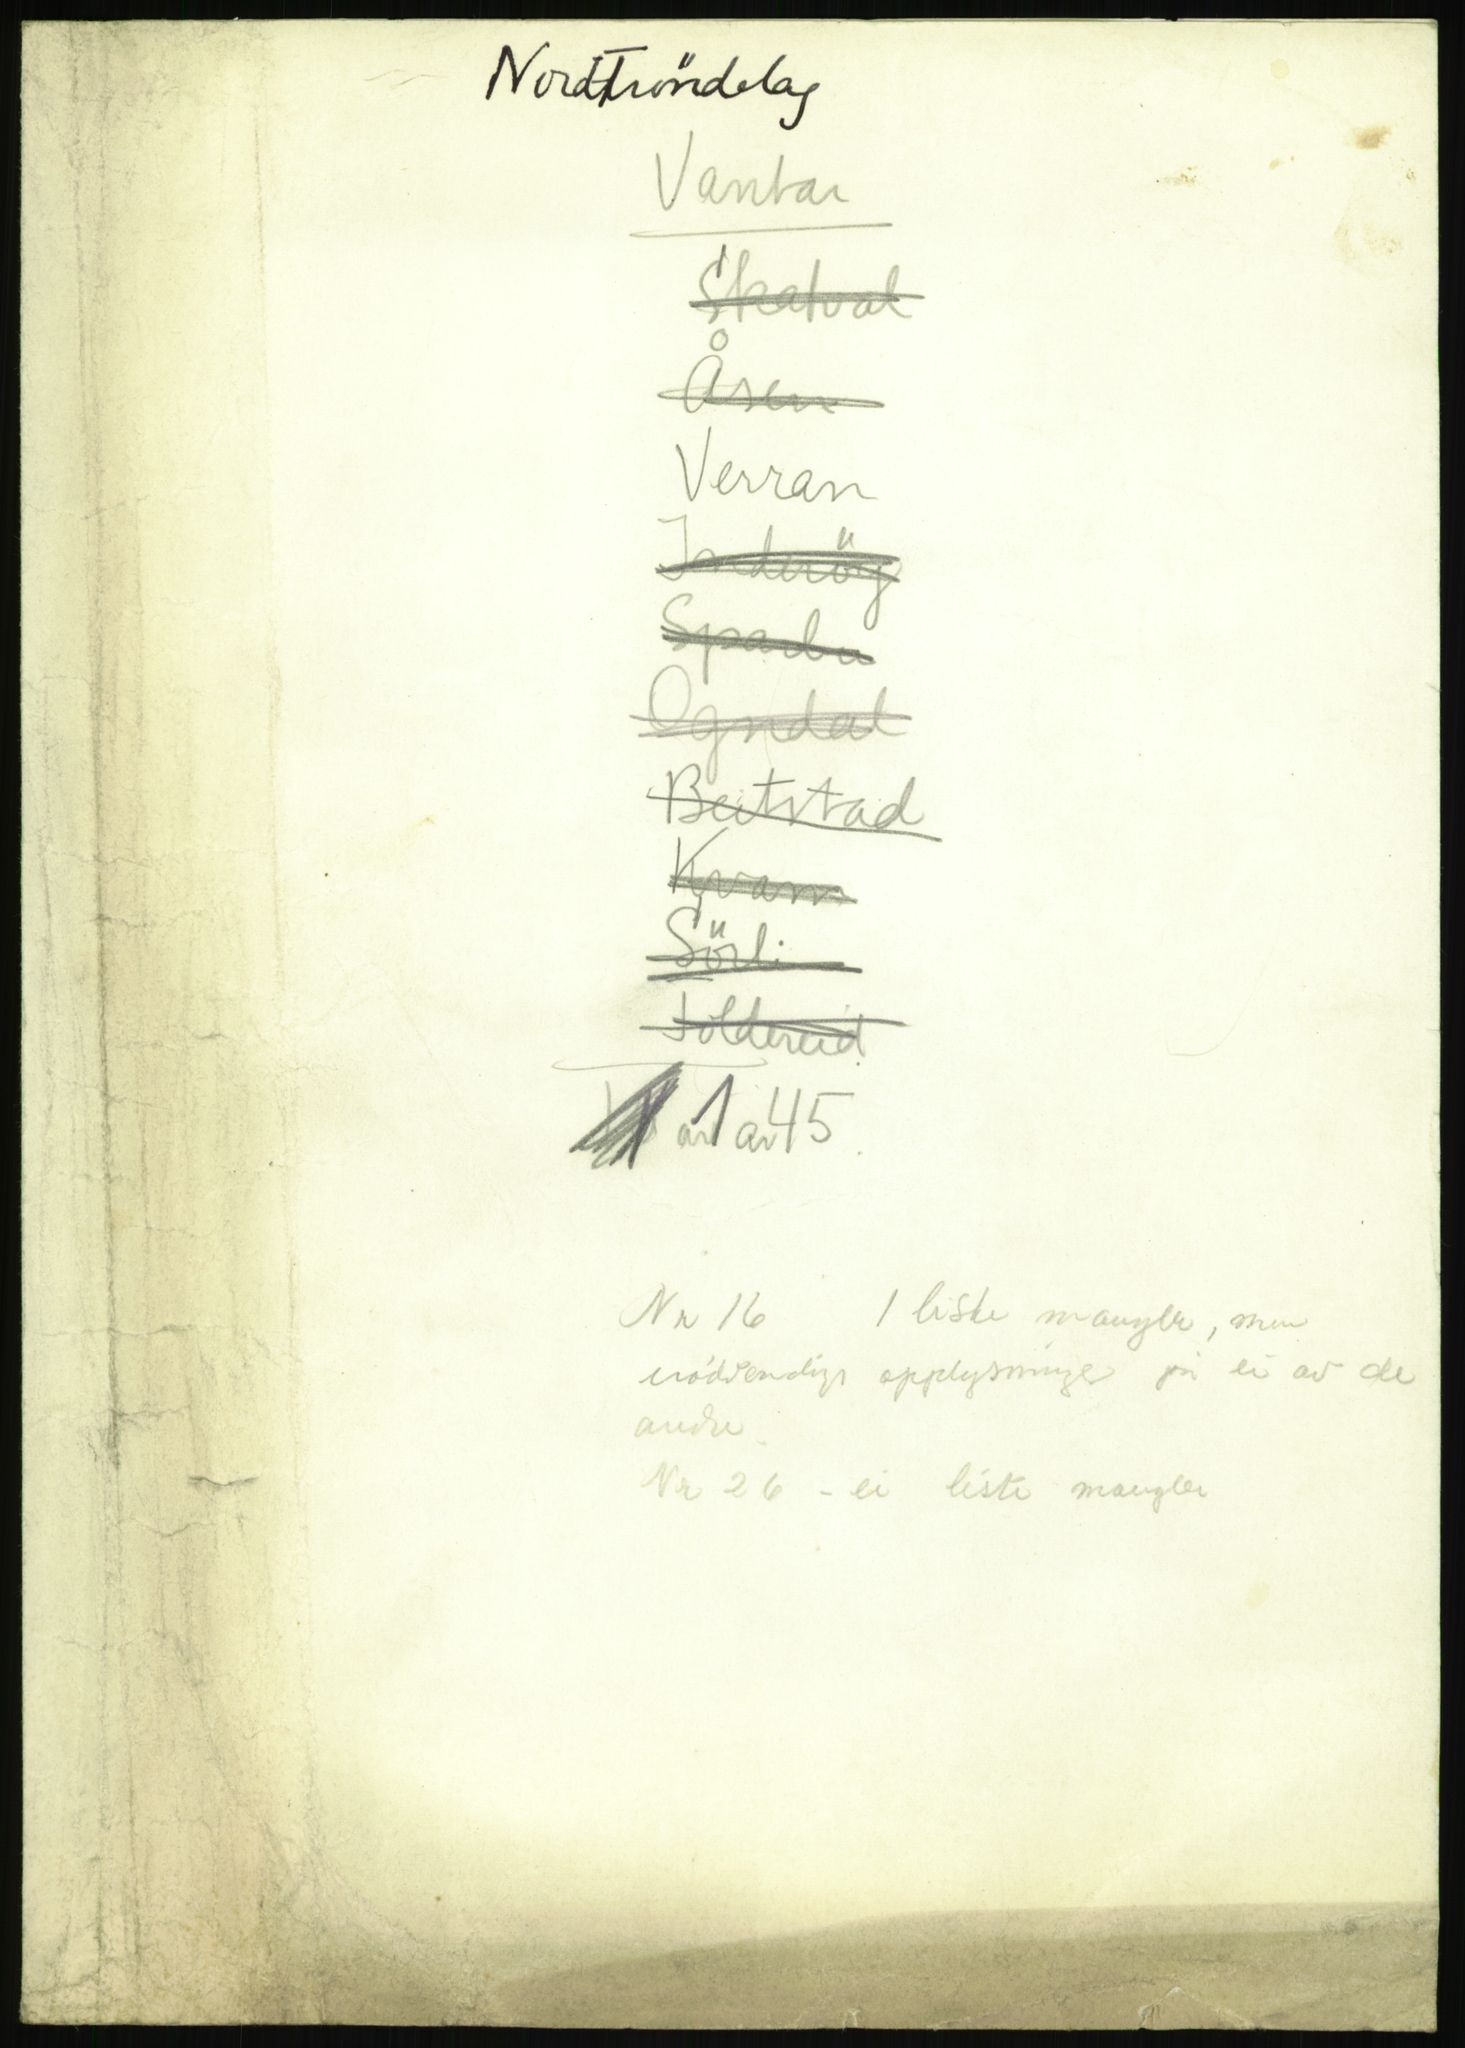 Nordtröndelag
Vantar
Skatval
Åsen
Verran
Inderöy
Sparbu
Ogndal
Beitstad
Kvam
Sörli
Foldereid
1 av 45
Nr 16 1 liste mangler, men
nödvendige opplysninger på ei av de
andre.
Nr 26 - ei liste mangler